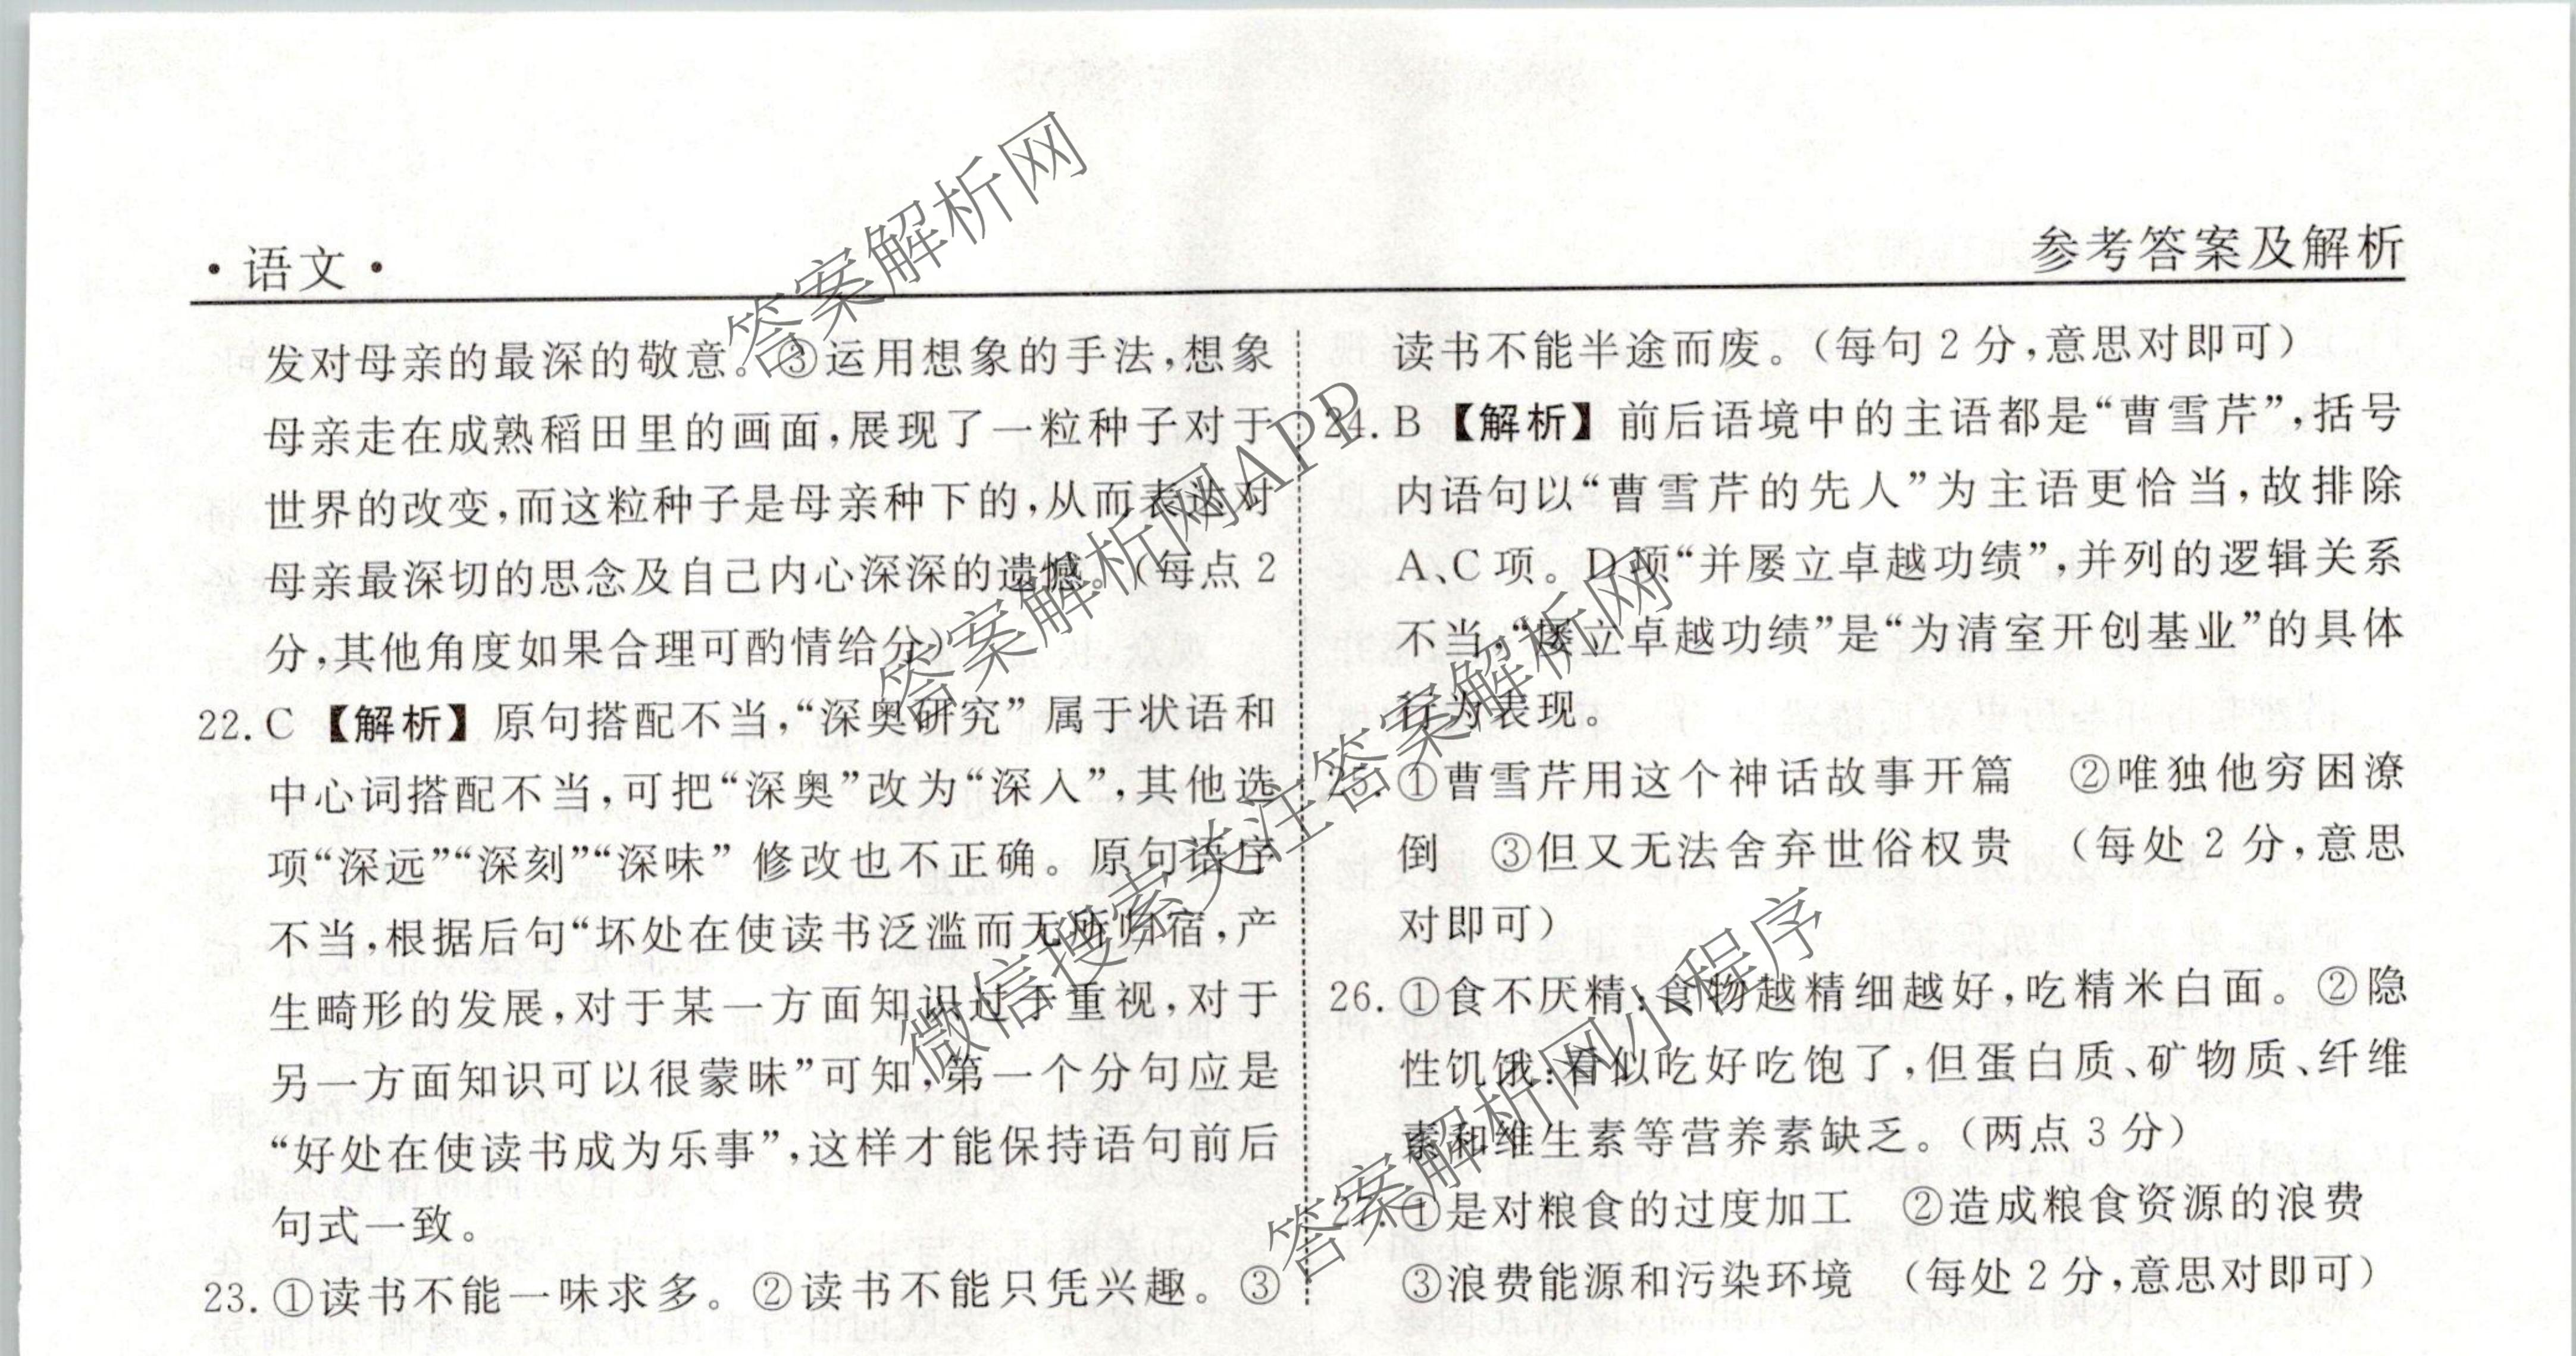 ·语文·
参考答案及解析
发对母亲的最深的敬意。③运用想象的手法,想象
母亲走在成熟稻田里的画面,展现了一粒种子对于
世界的改变,而这粒种子是母亲种下的,从而表达对
母亲最深切的思念及自己内心深深的遗憾。(每点2
分,其他角度如果合理可酌情给分)
22.C 【解析】原句搭配不当,“深奥研究”属于状语和
中心词搭配不当,可把“深奥”改为“深入”,其他选
项“深远”“深刻”“深味”修改也不正确。原句语序
不当,根据后句“坏处在使读书泛滥而无所归宿,产
生畸形的发展,对于某一方面知识过于重视,对于
另一方面知识可以很蒙昧”可知,第一个分句应是
“好处在使读书成为乐事”,这样才能保持语句前后
句式一致。
23.①读书不能一味求多。②读书不能只凭兴趣。③
读书不能半途而废。(每句2分,意思对即可)
24.B 【解析】前后语境中的主语都是“曹雪芹”,括号
内语句以“曹雪芹的先人”为主语更恰当,故排除
A、C项。D项“并屡立卓越功绩”,并列的逻辑关系
不当,“屡立卓越功绩”是“为清室开创基业”的具体
行为表现。
25.①曹雪芹用这个神话故事开篇 ②唯独他穷困潦
倒 ③但又无法舍弃世俗权贵 (每处2分,意思
对即可)
26.①食不厌精:食物越精细越好,吃精米白面。②隐
性饥饿:看似吃好吃饱了,但蛋白质、矿物质、纤维
素和维生素等营养素缺乏。(两点3分)
27.①是对粮食的过度加工 ②造成粮食资源的浪费
③浪费能源和污染环境 (每处2分,意思对即可)
答案解析网
答案解析网APP
微信搜索关注答案解析网
答案解析网小程序